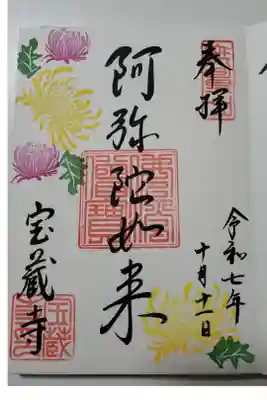 奉拝
阿弥陀如来
宝蔵寺
令和七年
十月十一日